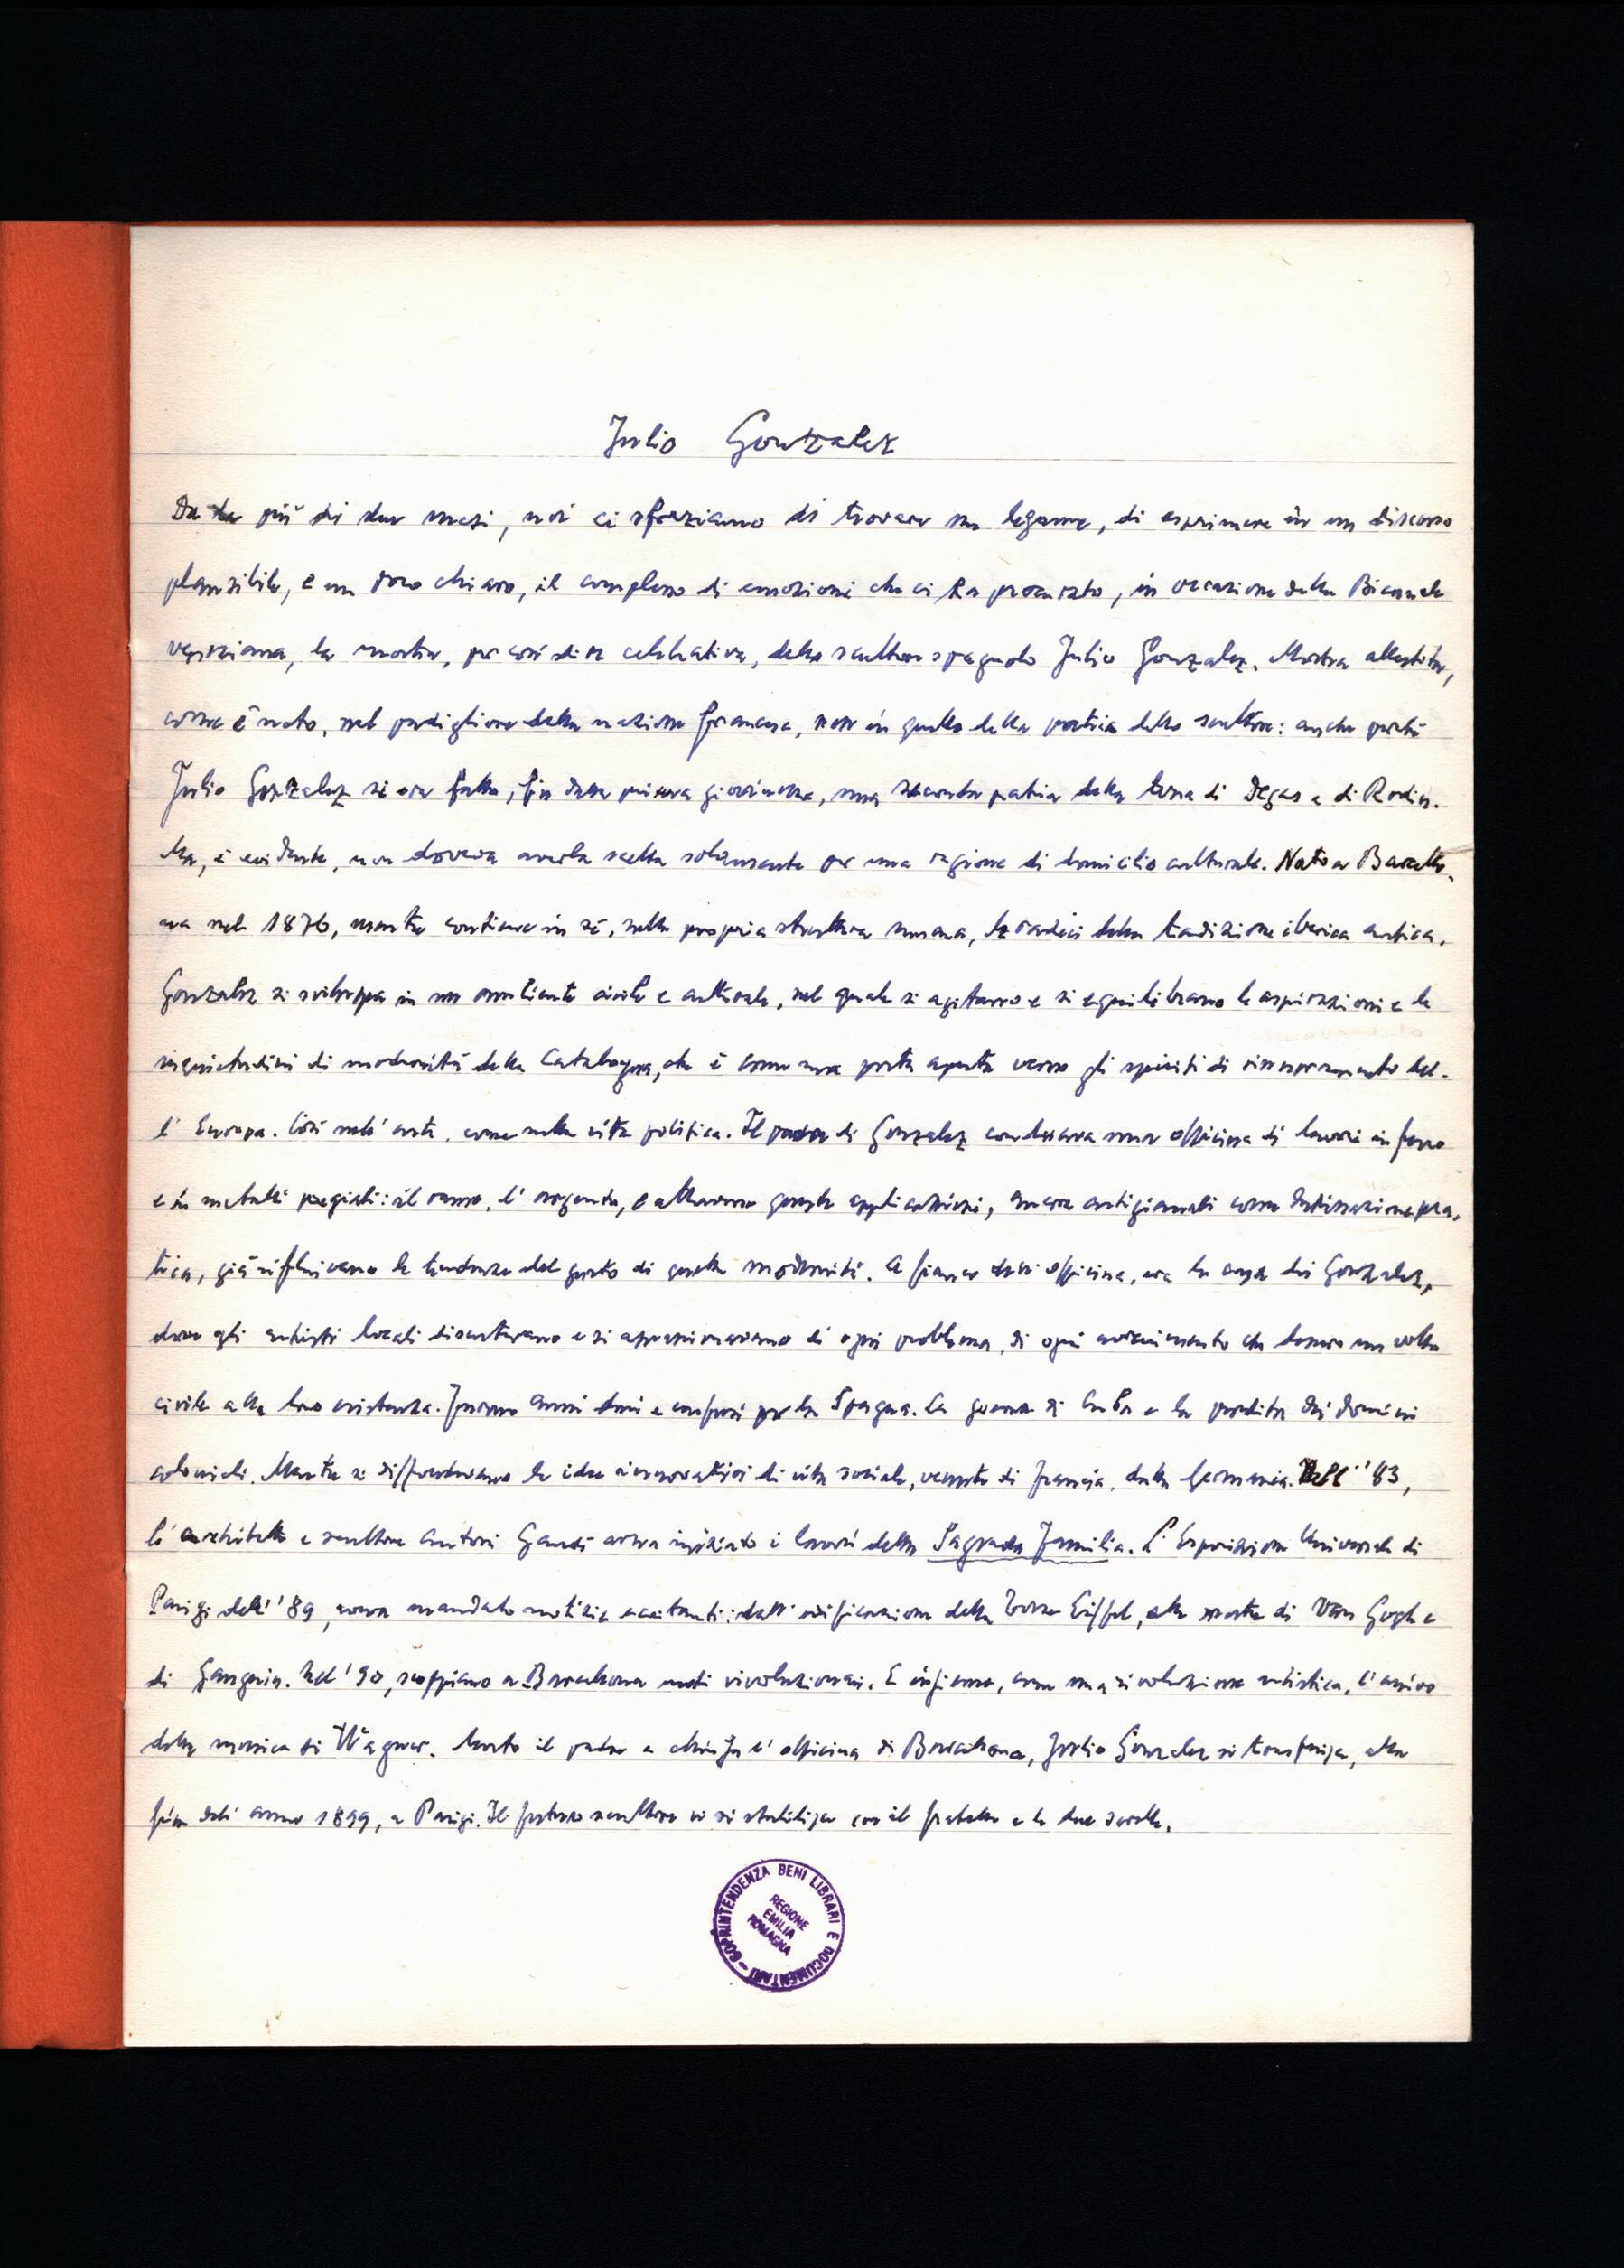 Julio Gonzalez
Da più di due mesi, noi ci sforziamo di trovare un legame, di esprimere in un discorso
plausibile, e un poco chiaro, il complesso di emozioni che ci ha procurato, in occasione della Biennale
veneziana, la mostra, per così dire celebrativa, dello scultore spagnolo Julio Gonzalez. Mostra allestita,
come è noto, nel padiglione della nazione francese, non in quello della patria dello scultore: anche perché
Julio Gonzalez si era fatta, fin dalla prima giovinezza, una seconda patria della terra di Degas e di Rodin.
Ma, è evidente, non doveva averla scelta solamente per una ragione di domicilio culturale. Nato a Barcello-
na nel 1876, mentre contiene in sé, nella propria struttura umana, le radici della tradizione iberica antica,
Gonzalez si sviluppa in un ambiente civile e culturale, nel quale si agitano e si equilibrano le aspirazioni e le
inquietudini di modernità della Catalogna, che è come una porta aperta verso gli spiriti di rinnovamento del-
l'Europa. Così nell'arte, come nella vita politica. Il padre di Gonzalez conduceva una officina di lavori in ferro
e in metalli pregiati: il rame, l'argento, e attraverso queste applicazioni, ancora artigianali come destinazione pra-
tica, già influivano le tendenze del gusto di quella modernità. A fianco dell'officina, era la casa dei Gonzalez,
dove gli artisti locali discutevano e si appassionavano di ogni problema, di ogni avvenimento che desse un volto
civile alla loro esistenza. Furono anni duri e confusi per la Spagna. La guerra di Cuba e la perdita dei domini
coloniali. Mentre si diffondevano le idee innovatrici di vita sociale, venute di Francia, dalla Germania. Nell''83,
l'architetto e scultore Antoni Gaudí aveva iniziato i lavori della Sagrada Familia. L'Esposizione Universale di
Parigi dell''89, aveva mandato notizie eccitanti: dall'edificazione della Torre Eiffel, alla mostra di Van Gogh e
di Gauguin. Nel '90, scoppiano a Barcellona moti rivoluzionari. E insieme, come una rivoluzione artistica, l'arrivo
della musica di Wagner. Morto il padre e chiusa l'officina di Barcellona, Julio Gonzalez si trasferisce, alla
fine dell'anno 1899, a Parigi. Il futuro scultore vi si stabilisce con il fratello e le due sorelle.
SOPRINTENDENZA BENI LIBRARI E DOCUMENTARI
REGIONE
EMILIA
ROMAGNA